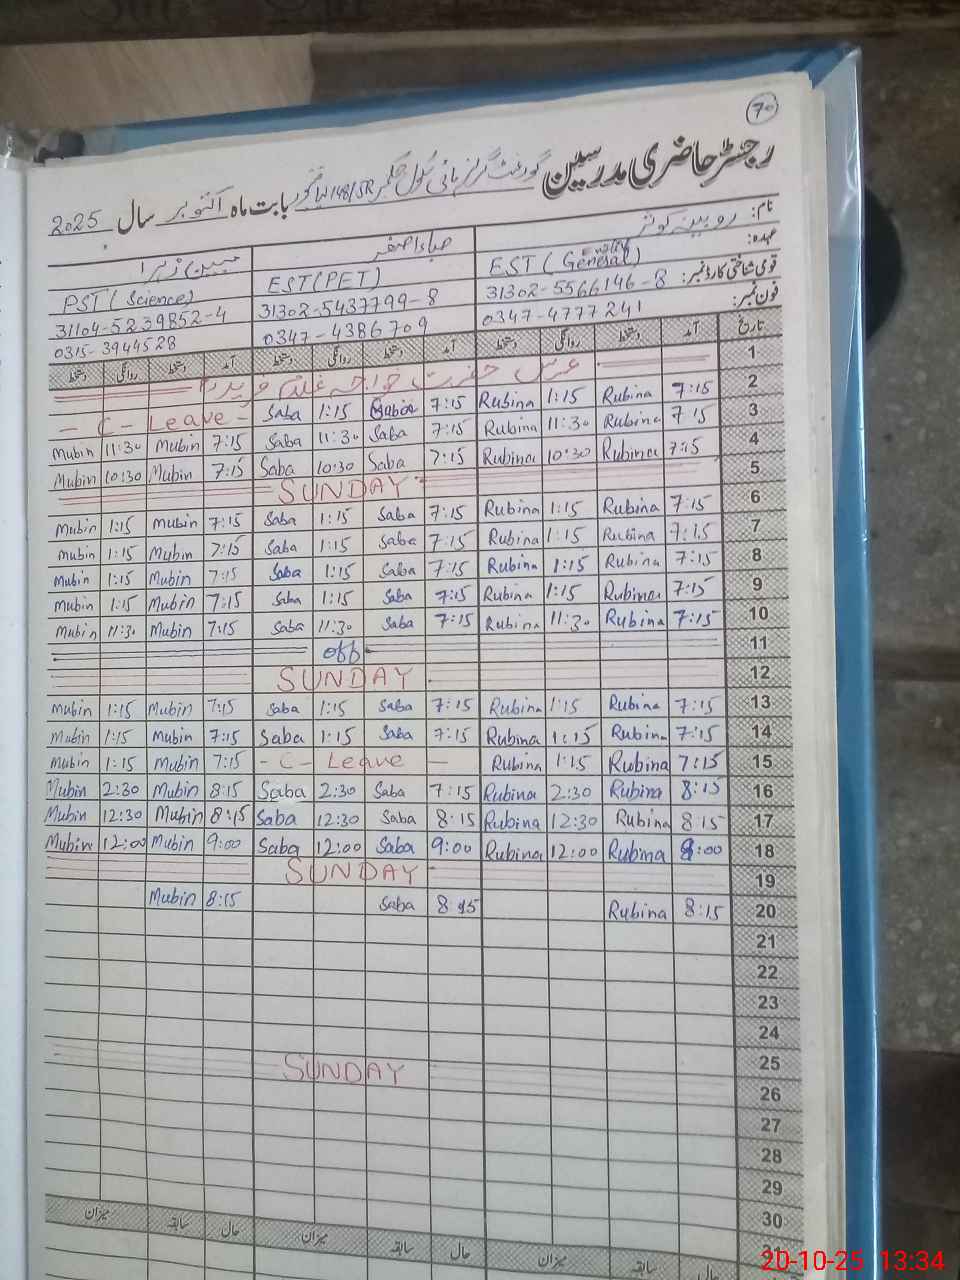 70
رجسٹر حاضری مدرسین گورنمنٹ گرلز ہائی سکول بابت ماہ اکتوبر سال 2025
نام: روبینہ کوثر صباء اصغر مبین زہرا
عہدہ: EST (General) English EST (PET) PST (Science)
قومی شناختی کارڈ نمبر: 31302-5566146-8 31302-5437799-8 31104-5239852-4
فون نمبر: 0347-4777241 0347-4386709 0315-3944528
تاریخ آمد دستخط روانگی دستخط آمد دستخط روانگی دستخط آمد دستخط روانگی دستخط
1 عرس حضرت خواجہ غلام فرید
- C - Leave - Saba 1:15 Saba 7:15 Rubina 1:15 Rubina 7:15 2
Mubin 11:30 Mubin 7:15 Saba 11:30 Saba 7:15 Rubina 11:30 Rubina 7:15 3
Mubin 10:30 Mubin 7:15 Saba 10:30 Saba 7:15 Rubina 10:30 Rubina 7:15 4
SUNDAY 5
Mubin 1:15 Mubin 7:15 Saba 1:15 Saba 7:15 Rubina 1:15 Rubina 7:15 6
Mubin 1:15 Mubin 7:15 Saba 1:15 Saba 7:15 Rubina 1:15 Rubina 7:15 7
Mubin 1:15 Mubin 7:15 Saba 1:15 Saba 7:15 Rubina 1:15 Rubina 7:15 8
Mubin 1:15 Mubin 7:15 Saba 1:15 Saba 7:15 Rubina 1:15 Rubina 7:15 9
Mubin 11:30 Mubin 7:15 Saba 11:30 Saba 7:15 Rubina 11:30 Rubina 7:15 10
off 11
SUNDAY 12
Mubin 1:15 Mubin 7:15 Saba 1:15 Saba 7:15 Rubina 1:15 Rubina 7:15 13
Mubin 1:15 Mubin 7:15 Saba 1:15 Saba 7:15 Rubina 1:15 Rubina 7:15 14
Mubin 1:15 Mubin 7:15 - C - Leave - Rubina 1:15 Rubina 7:15 15
Mubin 2:30 Mubin 8:15 Saba 2:30 Saba 7:15 Rubina 2:30 Rubina 8:15 16
Mubin 12:30 Mubin 8:15 Saba 12:30 Saba 8:15 Rubina 12:30 Rubina 8:15 17
Mubin 12:00 Mubin 9:00 Saba 12:00 Saba 9:00 Rubina 12:00 Rubina 9:00 18
SUNDAY 19
Mubin 8:15 Saba 8:15 Rubina 8:15 20
21
22
23
24
SUNDAY 25
26
27
28
29
30
حال سابقہ میزان حال سابقہ میزان حال سابقہ میزان
20-10-25 13:34